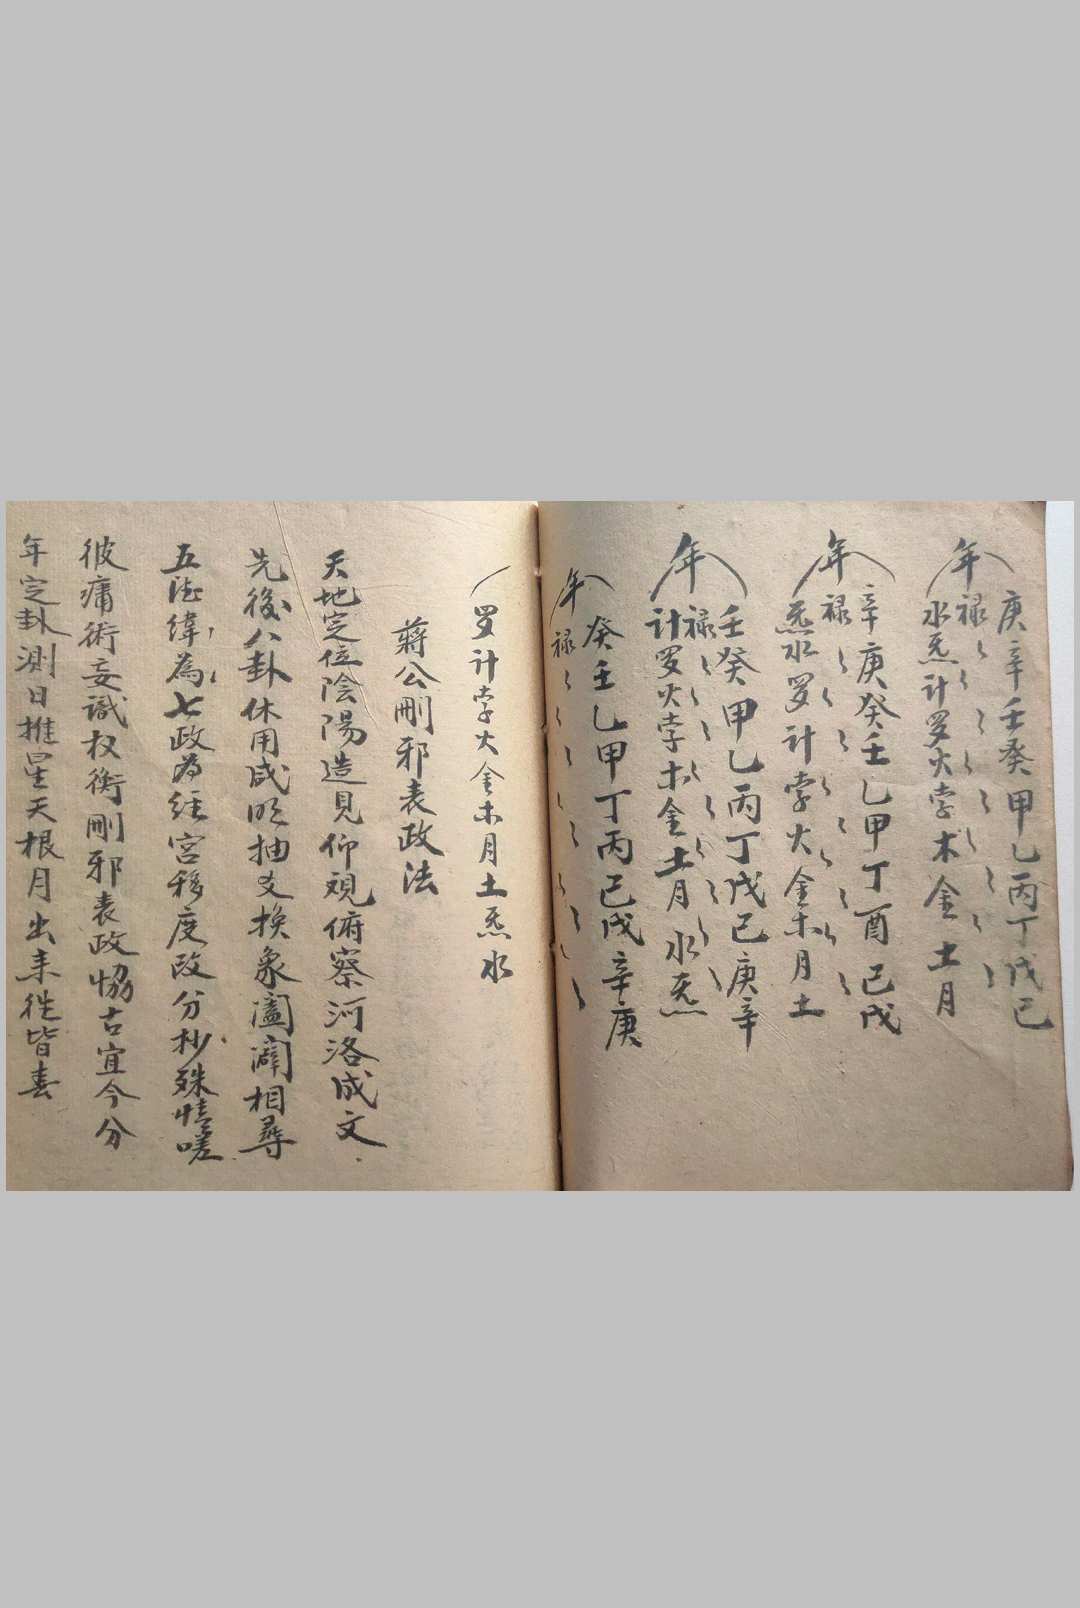 年 庚辛壬癸甲乙丙丁戊己
禄
水炁计罗火孛木金土月
年 辛庚癸壬乙甲丁酉己戊
禄
炁水罗计孛火金木月土
年 壬癸甲乙丙丁戊己庚辛
禄
计罗火孛木金土月水炁
年 癸壬乙甲丁丙己戊辛庚
禄
罗计孛火金木月土炁水
蔣公刪邪表政法
天地定位陰陽造見仰观俯察河洛成文
先後八卦休用咸明抽爻换象闔闢相尋
五德緯為七政為经宫移度改分抄殊情嗟
彼庸術妄識权衡刪邪表政恊古宜今分
年定卦測日推星天根月出来徃皆春